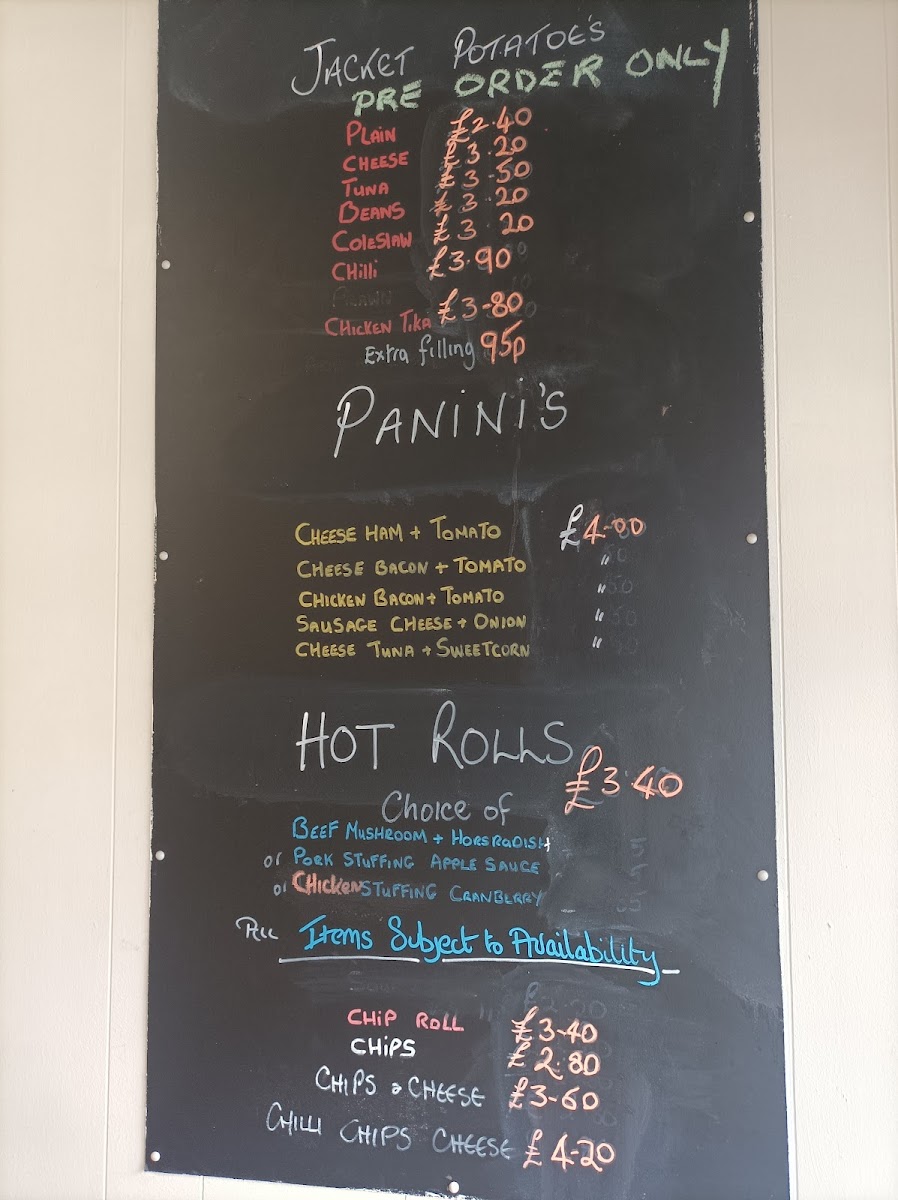 JACKET POTATOE'S
PRE ORDER ONLY
PLAIN £2.40
CHEESE £3.20
TUNA £3.50
BEANS £3.20
COLESLAW £3.20
CHilli £3.90
PRAWN
CHICKEN TIKA £3-80
Extra filling 95p
PANINI'S
CHEESE HAM + TOMATO £4-00
CHEESE BACON + TOMATO "
CHICKEN BACON + TOMATO "
SAUSAGE CHEESE + ONION "
CHEESE TUNA + SWEETCORN "
HOT ROLLS £3.40
Choice of
BEEF MUSHROOM + HORSRADISH
or PORK STUFFING APPLE SAUCE
or CHICKEN STUFFING CRANBERRY
ALL Items Subject to Availability
CHIP ROLL £3-40
CHIPS £2.80
CHIPS & CHEESE £3-60
CHILLI CHIPS CHEESE £4-20